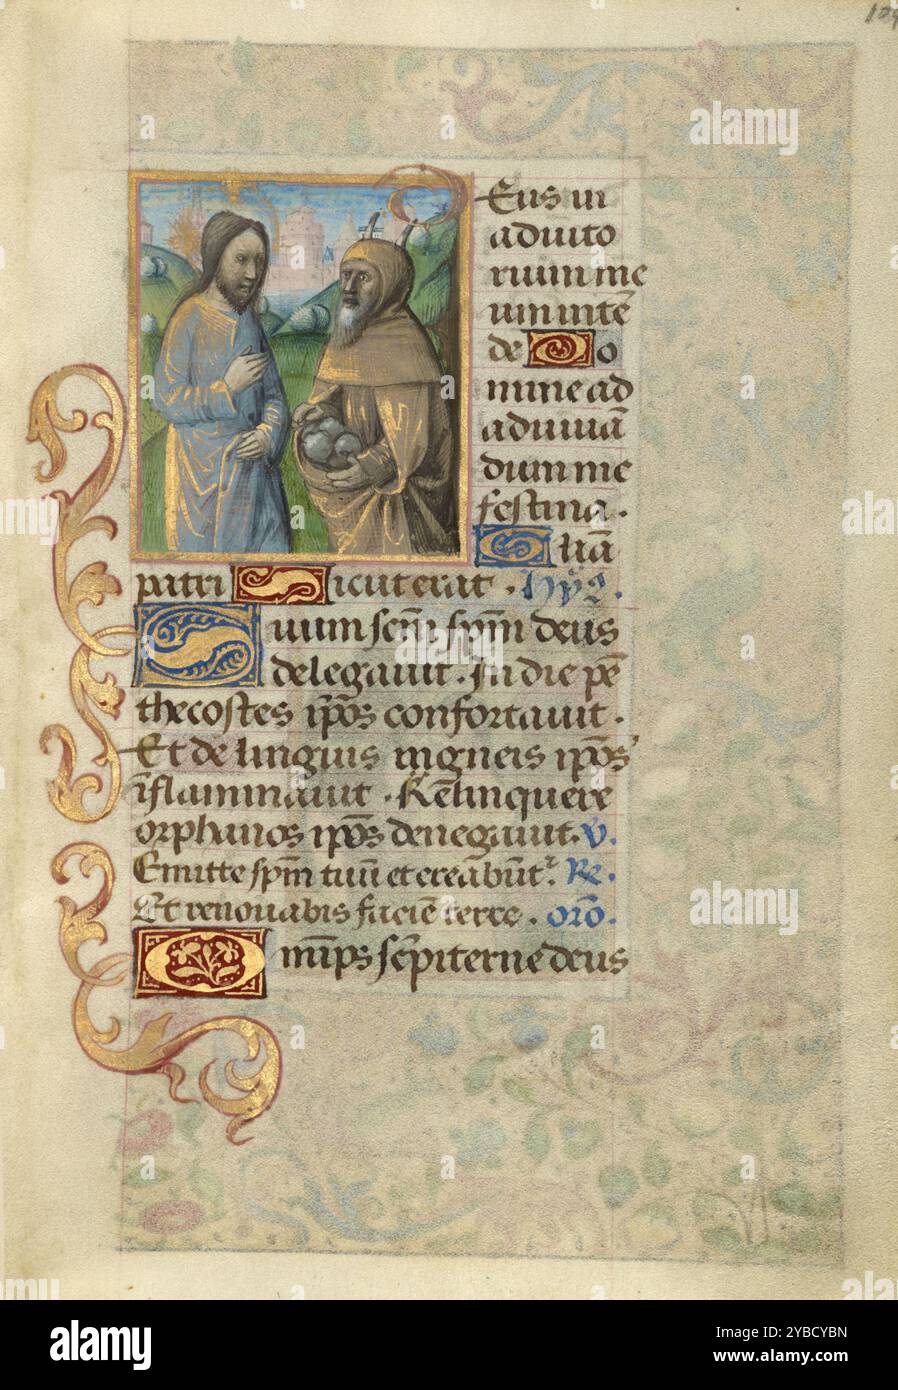 109
Eus in
adiuto
rium me
um intē
de Do
mine ad
adiuuā
dum me
festina.
Gliā
patri Sicut erat. Hỹ9.
Suum scm̄ spm̄ deus
delegauit. In die pē
thecostes ip̄os confortauit.
Et de linguis ingneis ip̄os
īflaminauit. Relinquere
orphanos ip̄os denegauit. V.
Emitte spm̄ tuū et creābūt᷑. Re.
Et renouabis faciē terre. orō.
Omīps sēpiterne deus
alamy
Image ID: 2YBCYBN
www.alamy.com